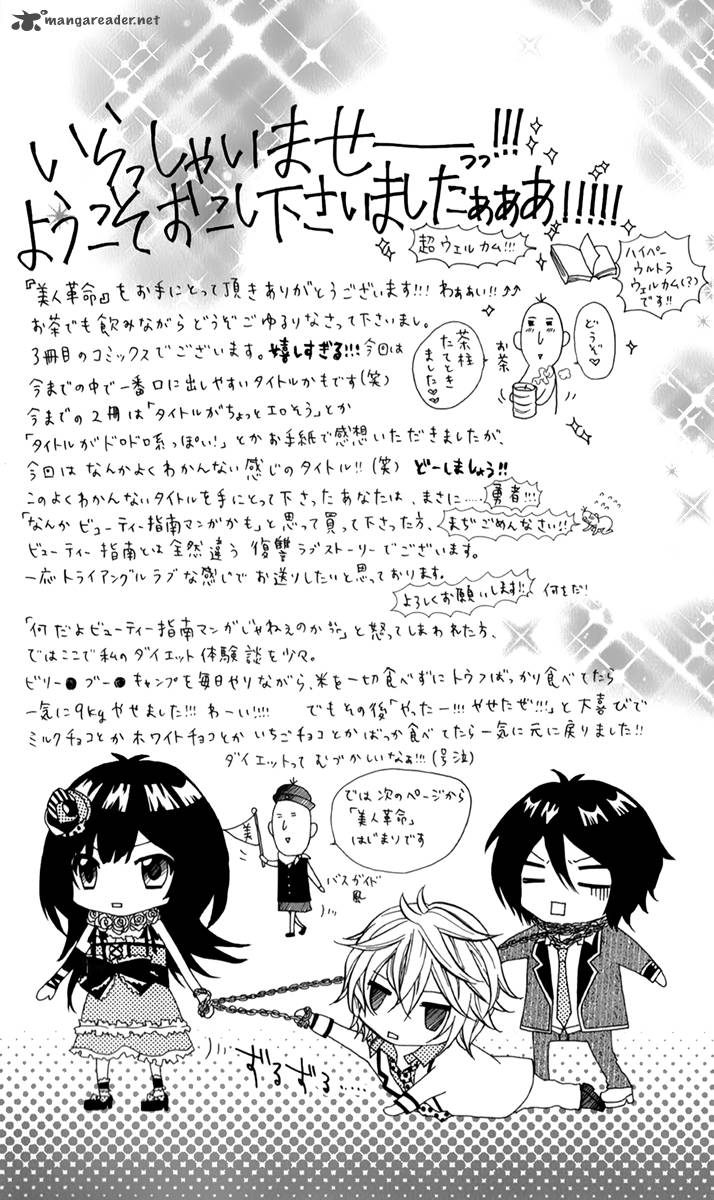 mangareader.net
いらっしゃいませーーっっ!!!
ようこそおこし下さいましたぁぁあ!!!!!
超ウェルカム!!!
ハイパー
ウルトラ
ウェルカム(?)
です!!
『美人革命』をお手にとって頂きありがとうございます!!! わぁぁい!!↑↑
お茶でも飲みながらどうぞごゆるりなさって下さいまし。
3冊目のコミックスでございます。嬉しすぎる!!! 今回は
今までの中で一番口に出しやすいタイトルかもです(笑)
茶柱
たてとき
ました♡
お茶
どうぞ♡
今までの2冊は「タイトルがちょっとエロそう」とか
「タイトルがドロドロ系っぽい!」とかお手紙で感想いただきましたが、
今回はなんかよくわかんない感じのタイトル!!(笑) どーしましょう!!
このよくわかんないタイトルを手にとって下さったあなたは、まさに……勇者!!!
「なんかビューティー指南マンガかも」と思って買って下さった方、まぢごめんなさい!!
ビューティー指南とは全然違う復讐ラブストーリーでございます。
一応トライアングルラブな感じでお送りしたいと思っております。
よろしくお願いします!! 何をだ!
「何だよビューティー指南マンガじゃねぇのか」と怒ってしまわれた方、
ではここで私のダイエット体験談を少々。
ビリー●ブー●キャンプを毎日やりながら、米を一切食べずにトウフばっかり食べてたら
一気に9kgやせました!!! わーい!!!! でもその後「やったー!!! やせたぜ!!!」と大喜びで
ミルクチョコとかホワイトチョコとかいちごチョコとかばっか食べてたら一気に元に戻りました!!
ダイエットってむづかしいなぁ!!!(号泣)
美
では次のページから
「美人革命」
はじまりです
バスガイド
風
ずるずる……